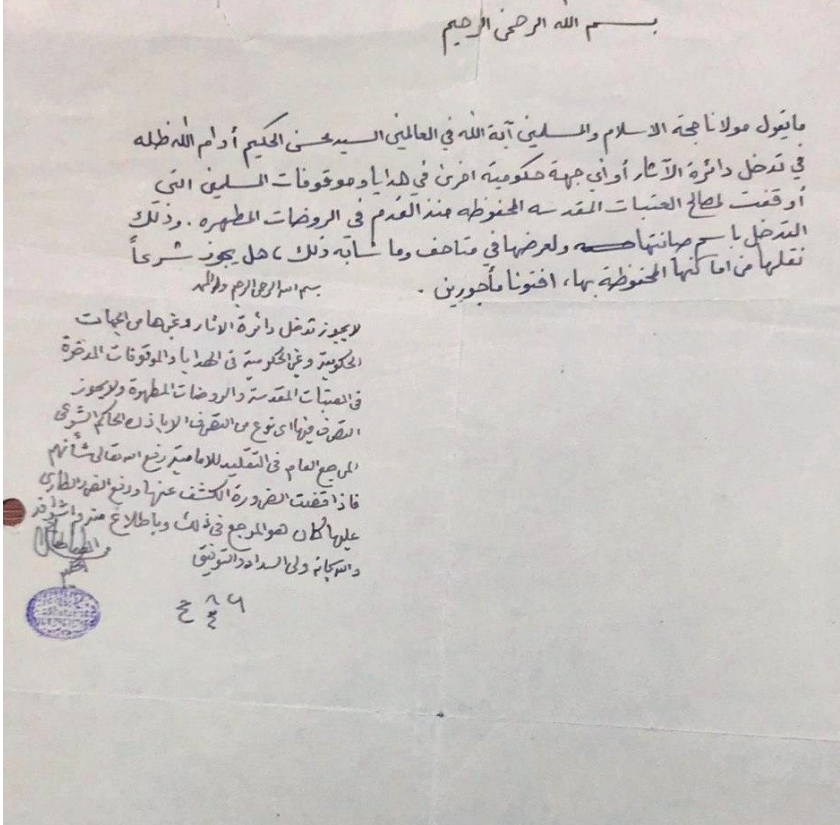 بسم الله الرحمن الرحيم
ما يقول مولانا حجة الاسلام والمسلمين آية الله في العالمين السيد محسن الحكيم أدام الله ظله
في تدخل دائرة الآثار أو اي جهة حكومية اخرى في هدايا وموقوفات المسلمين التي
أوقفت لمصالح العتبات المقدسه المحفوظه منذ القدم في الروضات المطهره . وذلك
التدخل باسم صيانتها ولعرضها في متاحف وما شابه ذلك ، هل يجوز شرعاً
نقلها من اماكنها المحفوظة بها ، افتونا مأجورين .
بسم الله الرحمن الرحيم وله الحمد
لا يجوز تدخل دائرة الاثار وغيرها من الجهات
الحكومية وغير الحكومية في الهدايا والموقوفات المدخرة
في العتبات المقدسة والروضات المطهرة ولا يجوز
التصرف فيها اي نوع من التصرف الا باذن الحاكم الشرعي
المرجع العام في التقليد للامامية رفع الله تعالى شأنهم
فاذا اقتضت الضرورة الكشف عنها ودفع الضرر الطارئ
عليها كان هو المرجع في ذلك وباطلاع منه واشراف
والله سبحانه ولي السداد والتوفيق